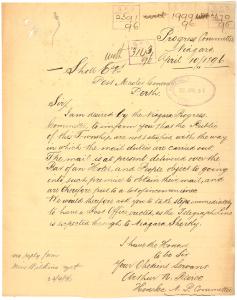 Progress Committee
Niagara
April 10/1896
Sholl Esq
Post Master General
Perth.
Sir/
I am desired by the Niagara Progress
Committee to inform you that the Public
of this Township are not satisfied with the way
in which the mail duties are carried out.
The mail is at present delivered over the
Bar of an Hotel, and People object to going into
such premises to obtain their mail, and
are therefore put to a lot of inconvenience.
We would therefore ask you to take steps immediately
to have a Post Office erected, as the Telegraph line
is expected to Niagara Shortly.
I have the Honor
to be Sir
Your Obedient Servant
Arthur
Committee
no reply from
yet